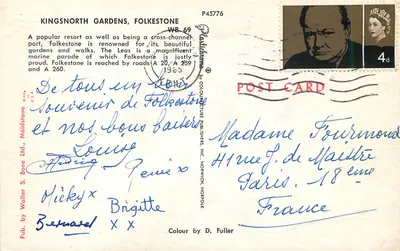 KINGSNORTH GARDENS, FOLKESTONE
P45776
WB 69
A popular resort as well as being a cross-channel
port, Folkestone is renowned for its beautiful
gardens and walks. The Leas is a magnificent
marine parade of which Folkestone is justly
proud. Folkestone is reached by roads A 20, A 259
and A 260.
1965
4d
POST CARD
Plastichrome
COLOURPICTURE PUBLISHERS, INC., NORWICH, NORFOLK
Pub. by Walter S. Byne Ltd., Maidstone
De tous un bon
souvenir de Folkestone
et nos bons baisers
Louise
Rémi x
Micky x
Brigitte
x x
Bernard
Madame Fourmond
41 rue J. de Maistre
Paris. 18ème
France
Colour by D. Fuller